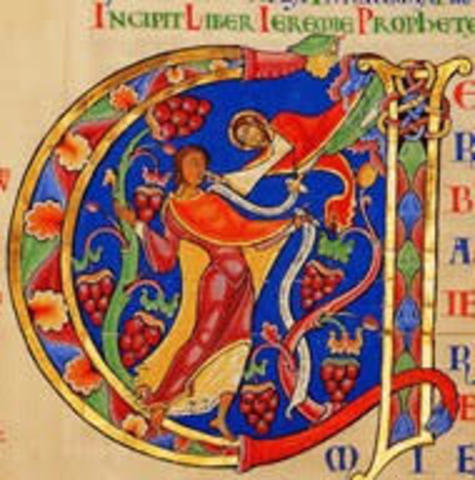 INCIPIT LIBER IEREMIE PROPHETE
U
E
R
B
A
IE
R
E
MIE